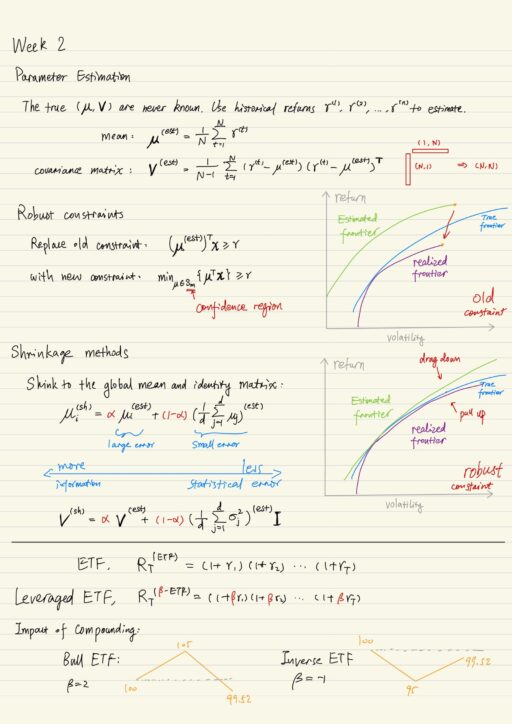 Week 2
Parameter Estimation
The true (μ, V) are never known. Use historical returns r^(1), r^(2), ..., r^(n) to estimate.
mean: μ^(est) = 1/N Σ_{t=1}^{N} r^(t)
covariance matrix: V^(est) = 1/(N-1) Σ_{t=1}^{N} (r^(t) - μ^(est)) (r^(t) - μ^(est))^T
(1, N)
(N, 1)
⇒ (N, N)
Robust constraints
Replace old constraint. (μ^(est))^T x ≥ r
with new constraint. min_{μ∈S_m} {μ^T x} ≥ r
confidence region
return
Estimated frontier
True frontier
realized frontier
old constaint
volatility
Shrinkage methods
Skink to the global mean and identity matrix:
μ_i^(sh) = α μ^(est) + (1-α) (1/d Σ_{j=1}^{d} μ_j)^(est)
large error
Small error
more information
less Statistical error
V^(sh) = α V^(est) + (1-α) (1/d Σ_{j=1}^{d} σ_j^2)^(est) I
return
drag down
Estimated frontier
True frontier
pull up
realized frontier
robust constaint
volatility
ETF. R_T^(ETF) = (1+r_1) (1+r_2) ... (1+r_T)
Leveraged ETF. R_T^(β-ETF) = (1+βr_1)(1+βr_2) ... (1+βr_T)
Impact of compounding:
Bull ETF:
β=2
100
105
99.52
Inverse ETF
β=-1
100
95
99.52